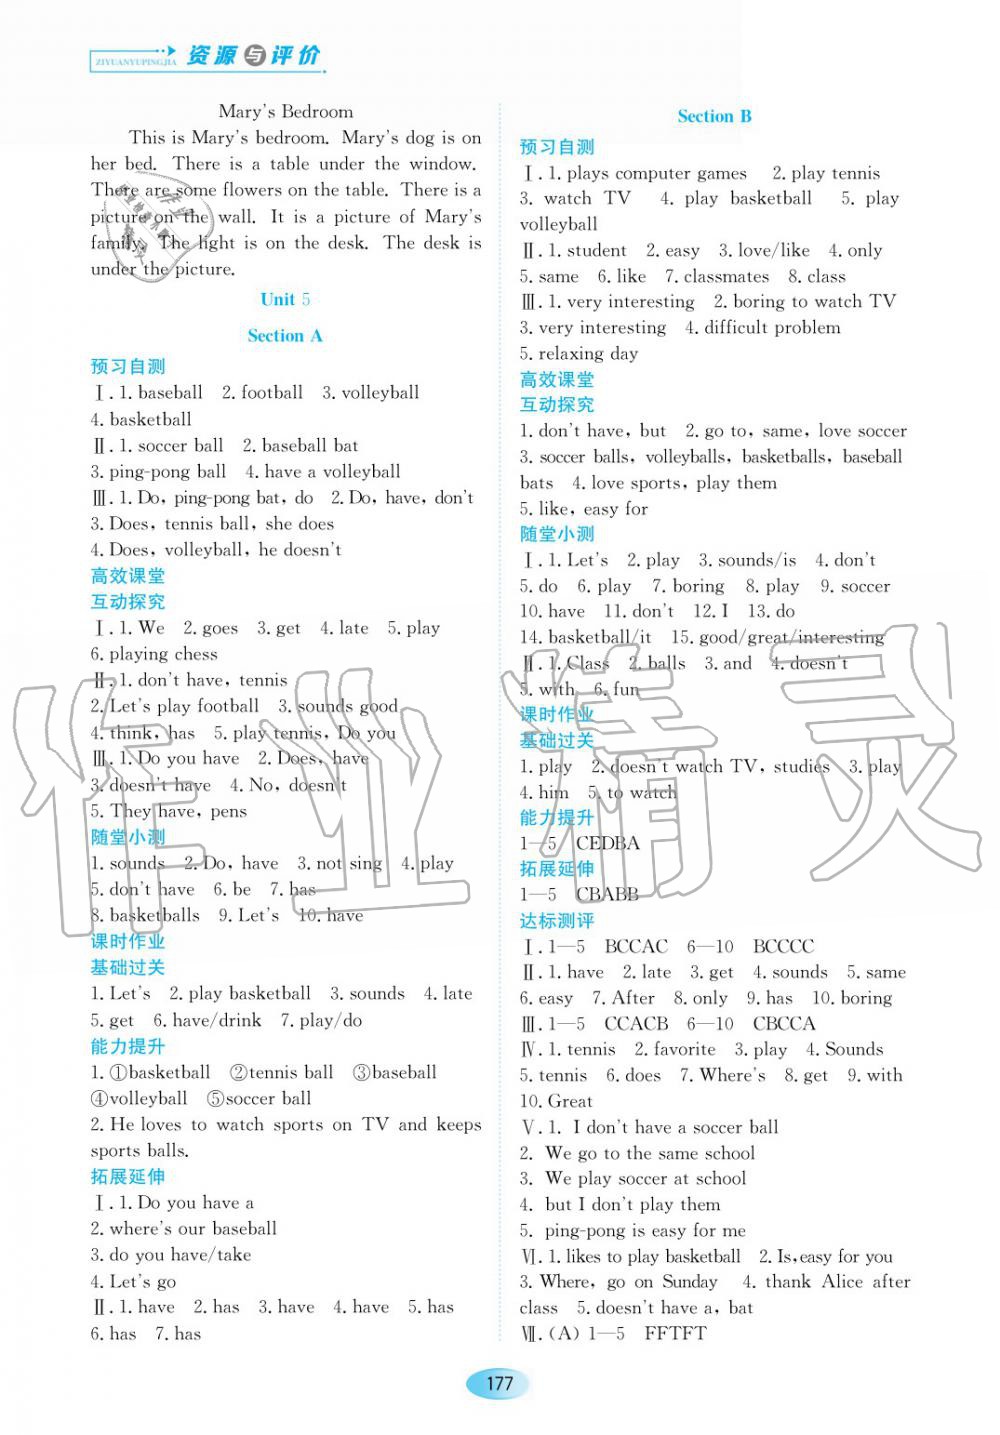 ZIYUANYUPINGJIA
资源与评价
Mary's Bedroom
This is Mary's bedroom. Mary's dog is on
her bed. There is a table under the window.
There are some flowers on the table. There is a
picture on the wall. It is a picture of Mary's
family. The light is on the desk. The desk is
under the picture.
Unit 5
Section A
预习自测
Ⅰ. 1. baseball 2. football 3. volleyball
4. basketball
Ⅱ. 1. soccer ball 2. baseball bat
3. ping-pong ball 4. have a volleyball
Ⅲ. 1. Do, ping-pong bat, do 2. Do, have, don't
3. Does, tennis ball, she does
4. Does, volleyball, he doesn't
高效课堂
互动探究
Ⅰ. 1. We 2. goes 3. get 4. late 5. play
6. playing chess
Ⅱ. 1. don't have, tennis
2. Let's play football 3. sounds good
4. think, has 5. play tennis, Do you
Ⅲ. 1. Do you have 2. Does, have
3. doesn't have 4. No, doesn't
5. They have, pens
随堂小测
1. sounds 2. Do, have 3. not sing 4. play
5. don't have 6. be 7. has
8. basketballs 9. Let's 10. have
课时作业
基础过关
1. Let's 2. play basketball 3. sounds 4. late
5. get 6. have/drink 7. play/do
能力提升
1. ①basketball ②tennis ball ③baseball
④volleyball ⑤soccer ball
2. He loves to watch sports on TV and keeps
sports balls.
拓展延伸
Ⅰ. 1. Do you have a
2. where's our baseball
3. do you have/take
4. Let's go
Ⅱ. 1. have 2. has 3. have 4. have 5. has
6. has 7. has
Section B
预习自测
Ⅰ. 1. plays computer games 2. play tennis
3. watch TV 4. play basketball 5. play
volleyball
Ⅱ. 1. student 2. easy 3. love/like 4. only
5. same 6. like 7. classmates 8. class
Ⅲ. 1. very interesting 2. boring to watch TV
3. very interesting 4. difficult problem
5. relaxing day
高效课堂
互动探究
1. don't have, but 2. go to, same, love soccer
3. soccer balls, volleyballs, basketballs, baseball
bats 4. love sports, play them
5. like, easy for
随堂小测
Ⅰ. 1. Let's 2. play 3. sounds/is 4. don't
5. do 6. play 7. boring 8. play 9. soccer
10. have 11. don't 12. I 13. do
14. basketball/it 15. good/great/interesting
Ⅱ. 1. Class 2. balls 3. and 4. doesn't
5. with 6. fun
课时作业
基础过关
1. play 2. doesn't watch TV, studies 3. play
4. him 5. to watch
能力提升
1—5 CEDBA
拓展延伸
1—5 CBABB
达标测评
Ⅰ. 1—5 BCCAC 6—10 BCCCC
Ⅱ. 1. have 2. late 3. get 4. sounds 5. same
6. easy 7. After 8. only 9. has 10. boring
Ⅲ. 1—5 CCACB 6—10 CBCCA
Ⅳ. 1. tennis 2. favorite 3. play 4. Sounds
5. tennis 6. does 7. Where's 8. get 9. with
10. Great
Ⅴ. 1. I don't have a soccer ball
2. We go to the same school
3. We play soccer at school
4. but I don't play them
5. ping-pong is easy for me
Ⅵ. 1. likes to play basketball 2. Is, easy for you
3. Where, go on Sunday 4. thank Alice after
class 5. doesn't have a, bat
Ⅶ. (A) 1—5 FFTFT
177
作业精灵